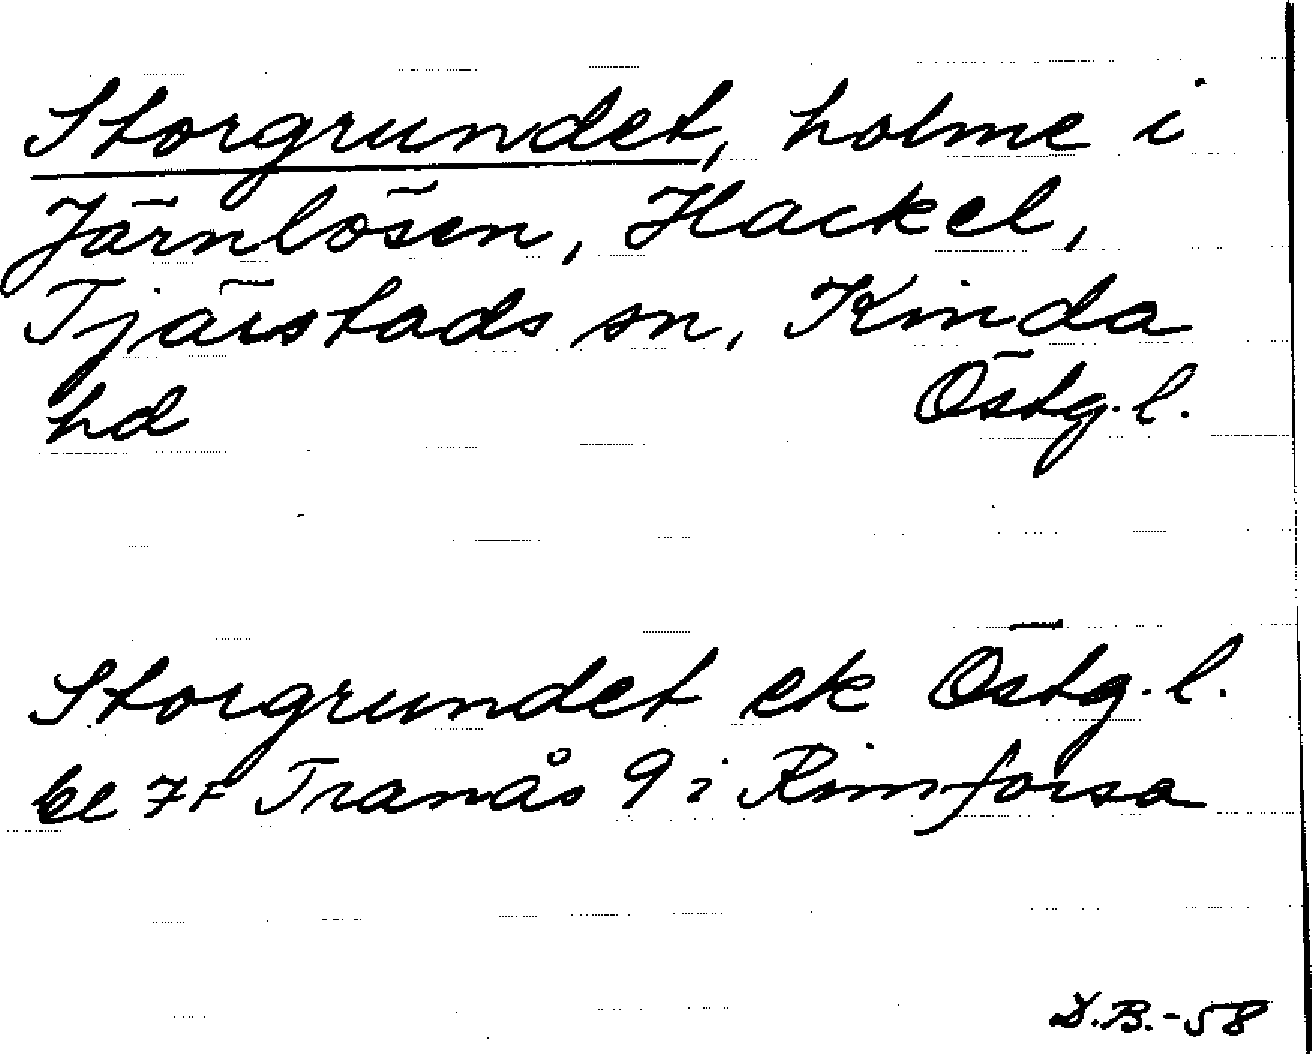 Storgrundet, holme i
Järnlösen, Hackel,
Tjärstads sn, Kinda
hd Östg.l.
Storgrundet ek Östg.l.
bl 7F Tranås 9 i Rimforsa
D.B.-58